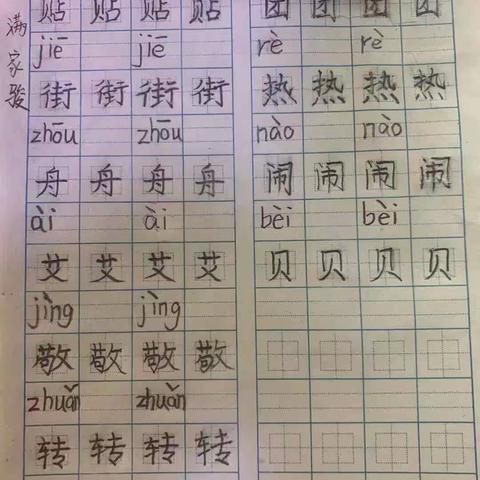 满家骏
贴 贴 贴 贴
jiē jiē
街 街 街 街
zhōu zhōu
舟 舟 舟 舟
ài ài
艾 艾 艾 艾
jìng jìng
敬 敬 敬 敬
zhuǎn zhuǎn
转 转 转 转
团 团 团 团
rè rè
热 热 热 热
nào nào
闹 闹 闹 闹
bèi bèi
贝 贝 贝 贝